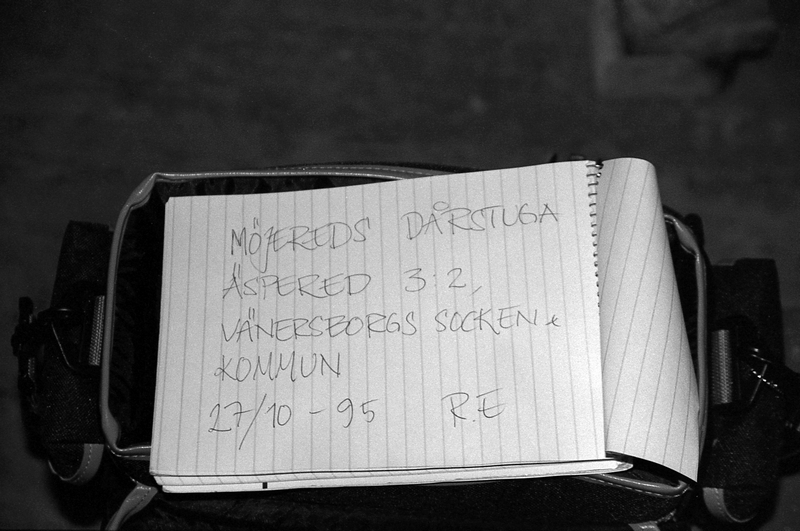 MÖJEREDS DÅRSTUGA
ÄSPERED 3:2,
VÄNERSBORGS SOCKEN &
KOMMUN
27/10 - 95 R.E